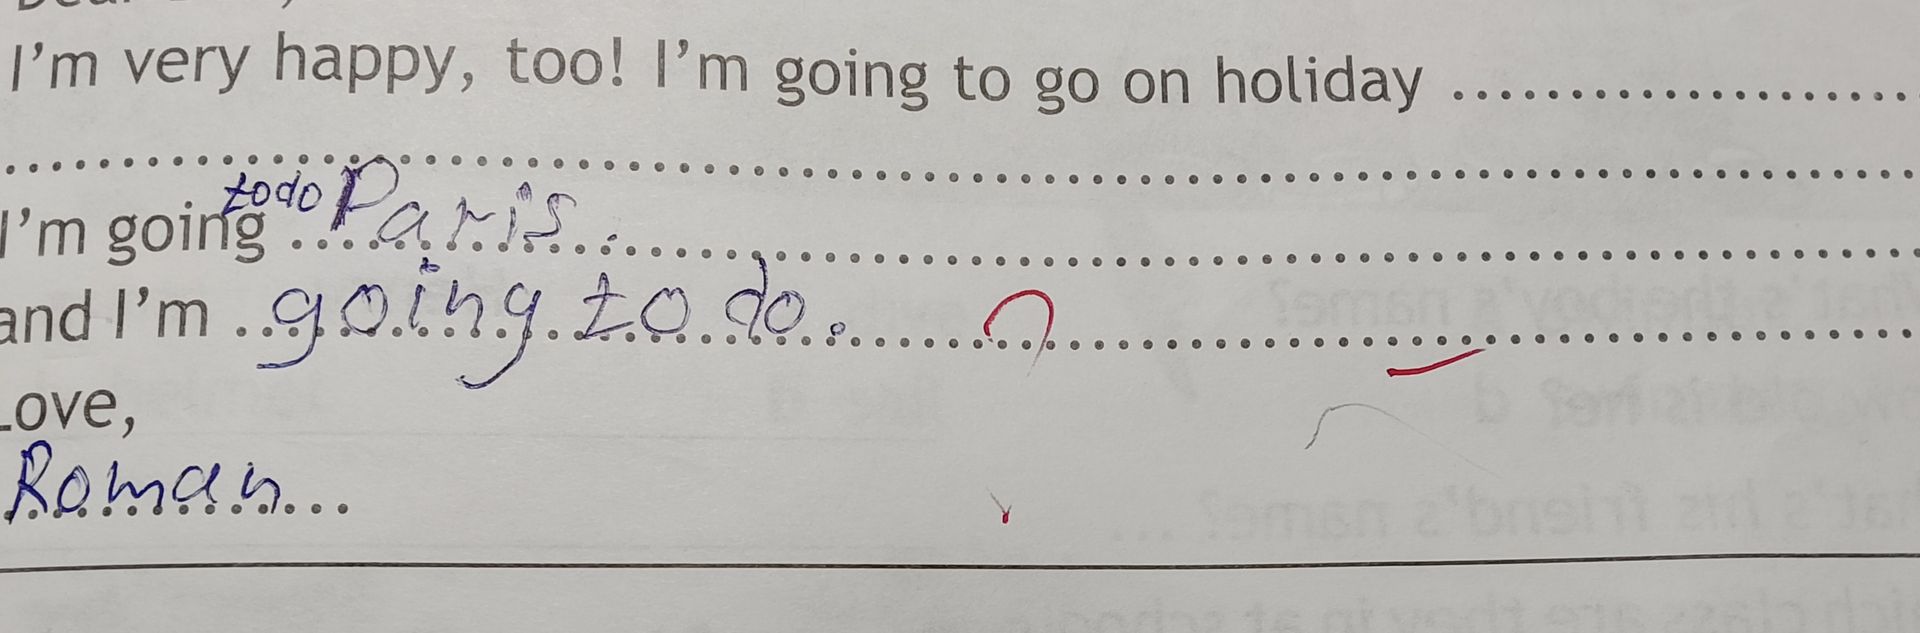 I'm very happy, too! I'm going to go on holiday ....................
................................................................................
I'm going to do Paris.
and I'm going to do.
Love,
Roman...